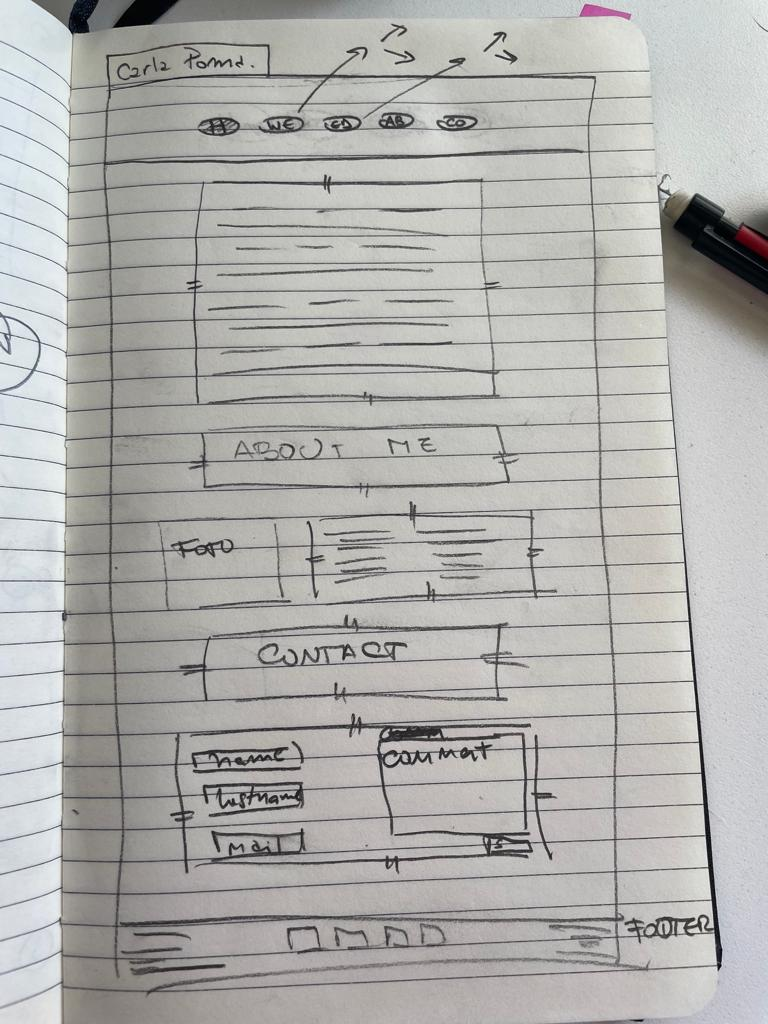 Carla Poma.
# WE ED AB CO
ABOUT ME
FOTO
CONTACT
name
lastname
mail
COMMENT
FOOTER